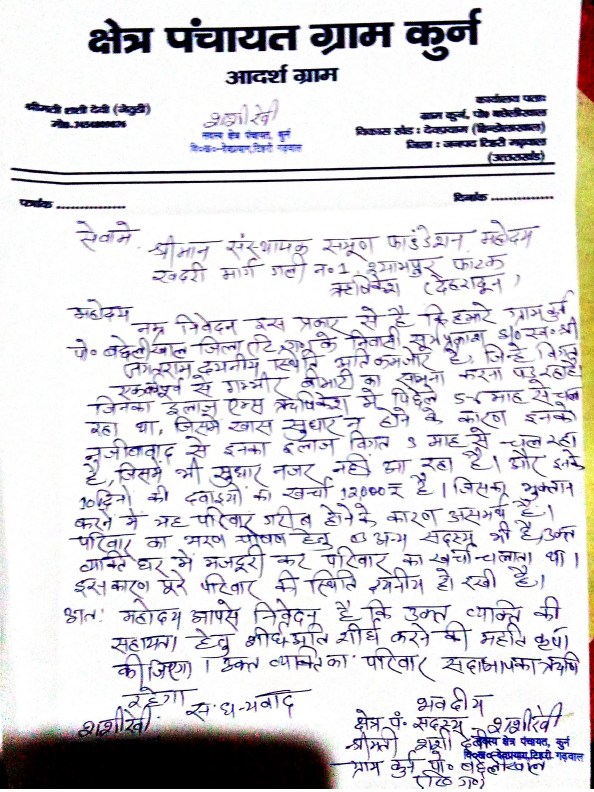 क्षेत्र पंचायत ग्राम कुर्न
आदर्श ग्राम
श्रीमती शशी देवी (जेठुडी)
मो०
शशी देवी
सदस्य क्षेत्र पंचायत, कुर्न
वि०ख०-देवप्रयाग, टिहरी गढ़वाल
कार्यालय पताः
ग्राम कुर्न, पो० बद्देलीखाल
विकास खंड : देवप्रयाग (हिन्डोलाखाल)
जिला : जनपद टिहरी गढ़वाल
(उत्तराखंड)
पत्रांक ................
दिनांक ................
सेवामे
श्रीमान संस्थापक समूण फाउंडेशन महोदय
खदरी मार्ग गली न० 1 श्यामपुर फाटक
ऋषिकेश (देहरादून)
महोदय
नम्र निवेदन इस प्रकार से है कि हमारे ग्राम कुर्न
पो० बद्देलीखाल जिला (टि० ग०) के निवासी सूर्यप्रकाश S/o स्व० श्री
जगतराम दयनीय स्थिति अति कमजोर है, जिन्हे विगत
एक वर्ष से गम्भीर बीमारी का सामना करना पड़ रहा है।
जिनका इलाज एम्स ऋषिकेश मे पिछले 5-6 माह से चल
रहा था, जिसमे खास सुधार न होने के कारण इनको
नजीबावाद से इनका ईलाज विगत 3 माह से चल रहा
है, जिसमे भी सुधार नजर नहीं आ रहा है। और इनके
10 दिनो की दवाइयो का खर्चा 12,000 रु है। जिसका भुक्तान
करने मे यह परिवार गरीब होने के कारण असमर्थ है।
परिवार का भरण पोषण हेतु 03 अन्य सदस्य भी है, उक्त
व्यक्ति घर मे मजदूरी कर परिवार का खर्चा चलाता था।
इस कारण पूरे परिवार की स्थिति दयनीय हो रखी है।
अतः महोदय आपसे निवेदन है कि उक्त व्यक्ति की
सहायता हेतु शीर्घ अति शीर्घ करने की महति कृपा
कीजिएगा। उक्त व्यक्ति का परिवार सदा आपका ऋषि
रहेगा
स:धन्यवाद
शशी देवी
भवदीय
क्षेत्र पं० सदस्य शशी देवी
श्रीमती शशी देवी
सदस्य क्षेत्र पंचायत, कुर्न
वि०ख०-देवप्रयाग, टिहरी गढ़वाल
ग्राम कुर्न पो० बद्देलीखाल
(टि० ग०)